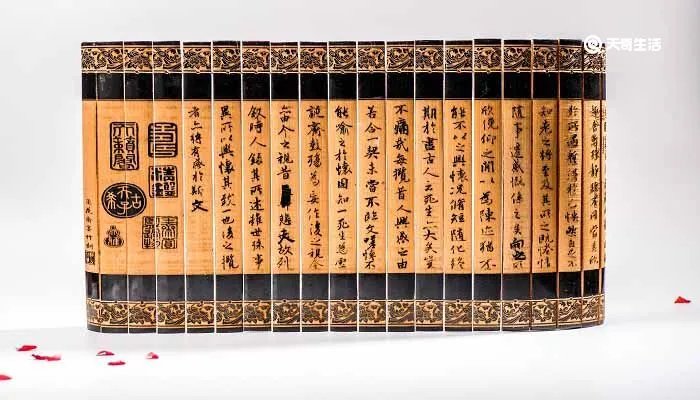 天奇生活
趣舍萬殊靜躁不同當其欣
於所遇暫得於己快然自足不
知老之將至及其所之既惓情
隨事遷感慨係之矣向之所
欣俛仰之間以為陳迹猶不
能不以之興懷況脩短隨化終
期於盡古人云死生亦大矣豈
不痛哉每攬昔人興感之由
若合一契未嘗不臨文嗟悼不
能喻之於懷固知一死生為虛
誕齊彭殤為妄作後之視今
亦由今之視昔悲夫故列
叙時人錄其所述雖世殊事
異所以興懷其致一也後之攬
者亦將有感於斯文